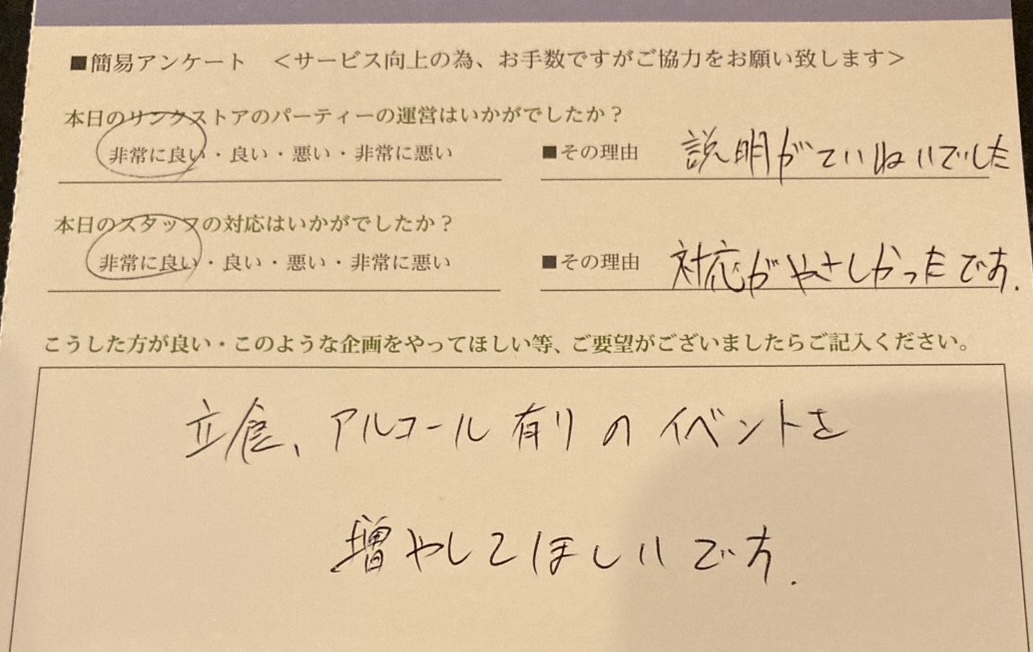 ■簡易アンケート ＜サービス向上の為、お手数ですがご協力をお願い致します＞
本日のリンクストアのパーティーの運営はいかがでしたか？
非常に良い・良い・悪い・非常に悪い ■その理由 説明がていねいでした
本日のスタッフの対応はいかがでしたか？
非常に良い・良い・悪い・非常に悪い ■その理由 対応がやさしかったです.
こうした方が良い・このような企画をやってほしい等、ご要望がございましたらご記入ください。
立食、アルコール有りのイベントを
増やしてほしいです.